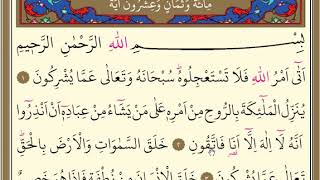 مِائَةٌ وَثَمَانٍ وَعِشْرُونَ اٰيَةً
بِسْمِ اللهِ الرَّحْمٰنِ الرَّحِيمِ
اَتٰٓى اَمْرُ اللهِ فَلَا تَسْتَعْجِلُوهُ سُبْحَانَهُ وَتَعَالٰى عَمَّا يُشْرِكُونَ ١
يُنَزِّلُ الْمَلٰٓئِكَةَ بِالرُّوحِ مِنْ اَمْرِهِ عَلٰى مَنْ يَشَٓاءُ مِنْ عِبَادِهِٓ اَنْ اَنْذِرُٓوا
اَنَّهُ لَٓا اِلٰهَ اِلَّٓا اَنَا۬ فَاتَّقُونِ ٢ خَلَقَ السَّمٰوَاتِ وَالْاَرْضَ بِالْحَقِّ
تَعَالٰى عَمَّا يُشْرِكُونَ ٣ خَلَقَ الْاِنْسَانَ مِنْ نُطْفَةٍ فَاِذَا هُوَ خَصِيمٌ